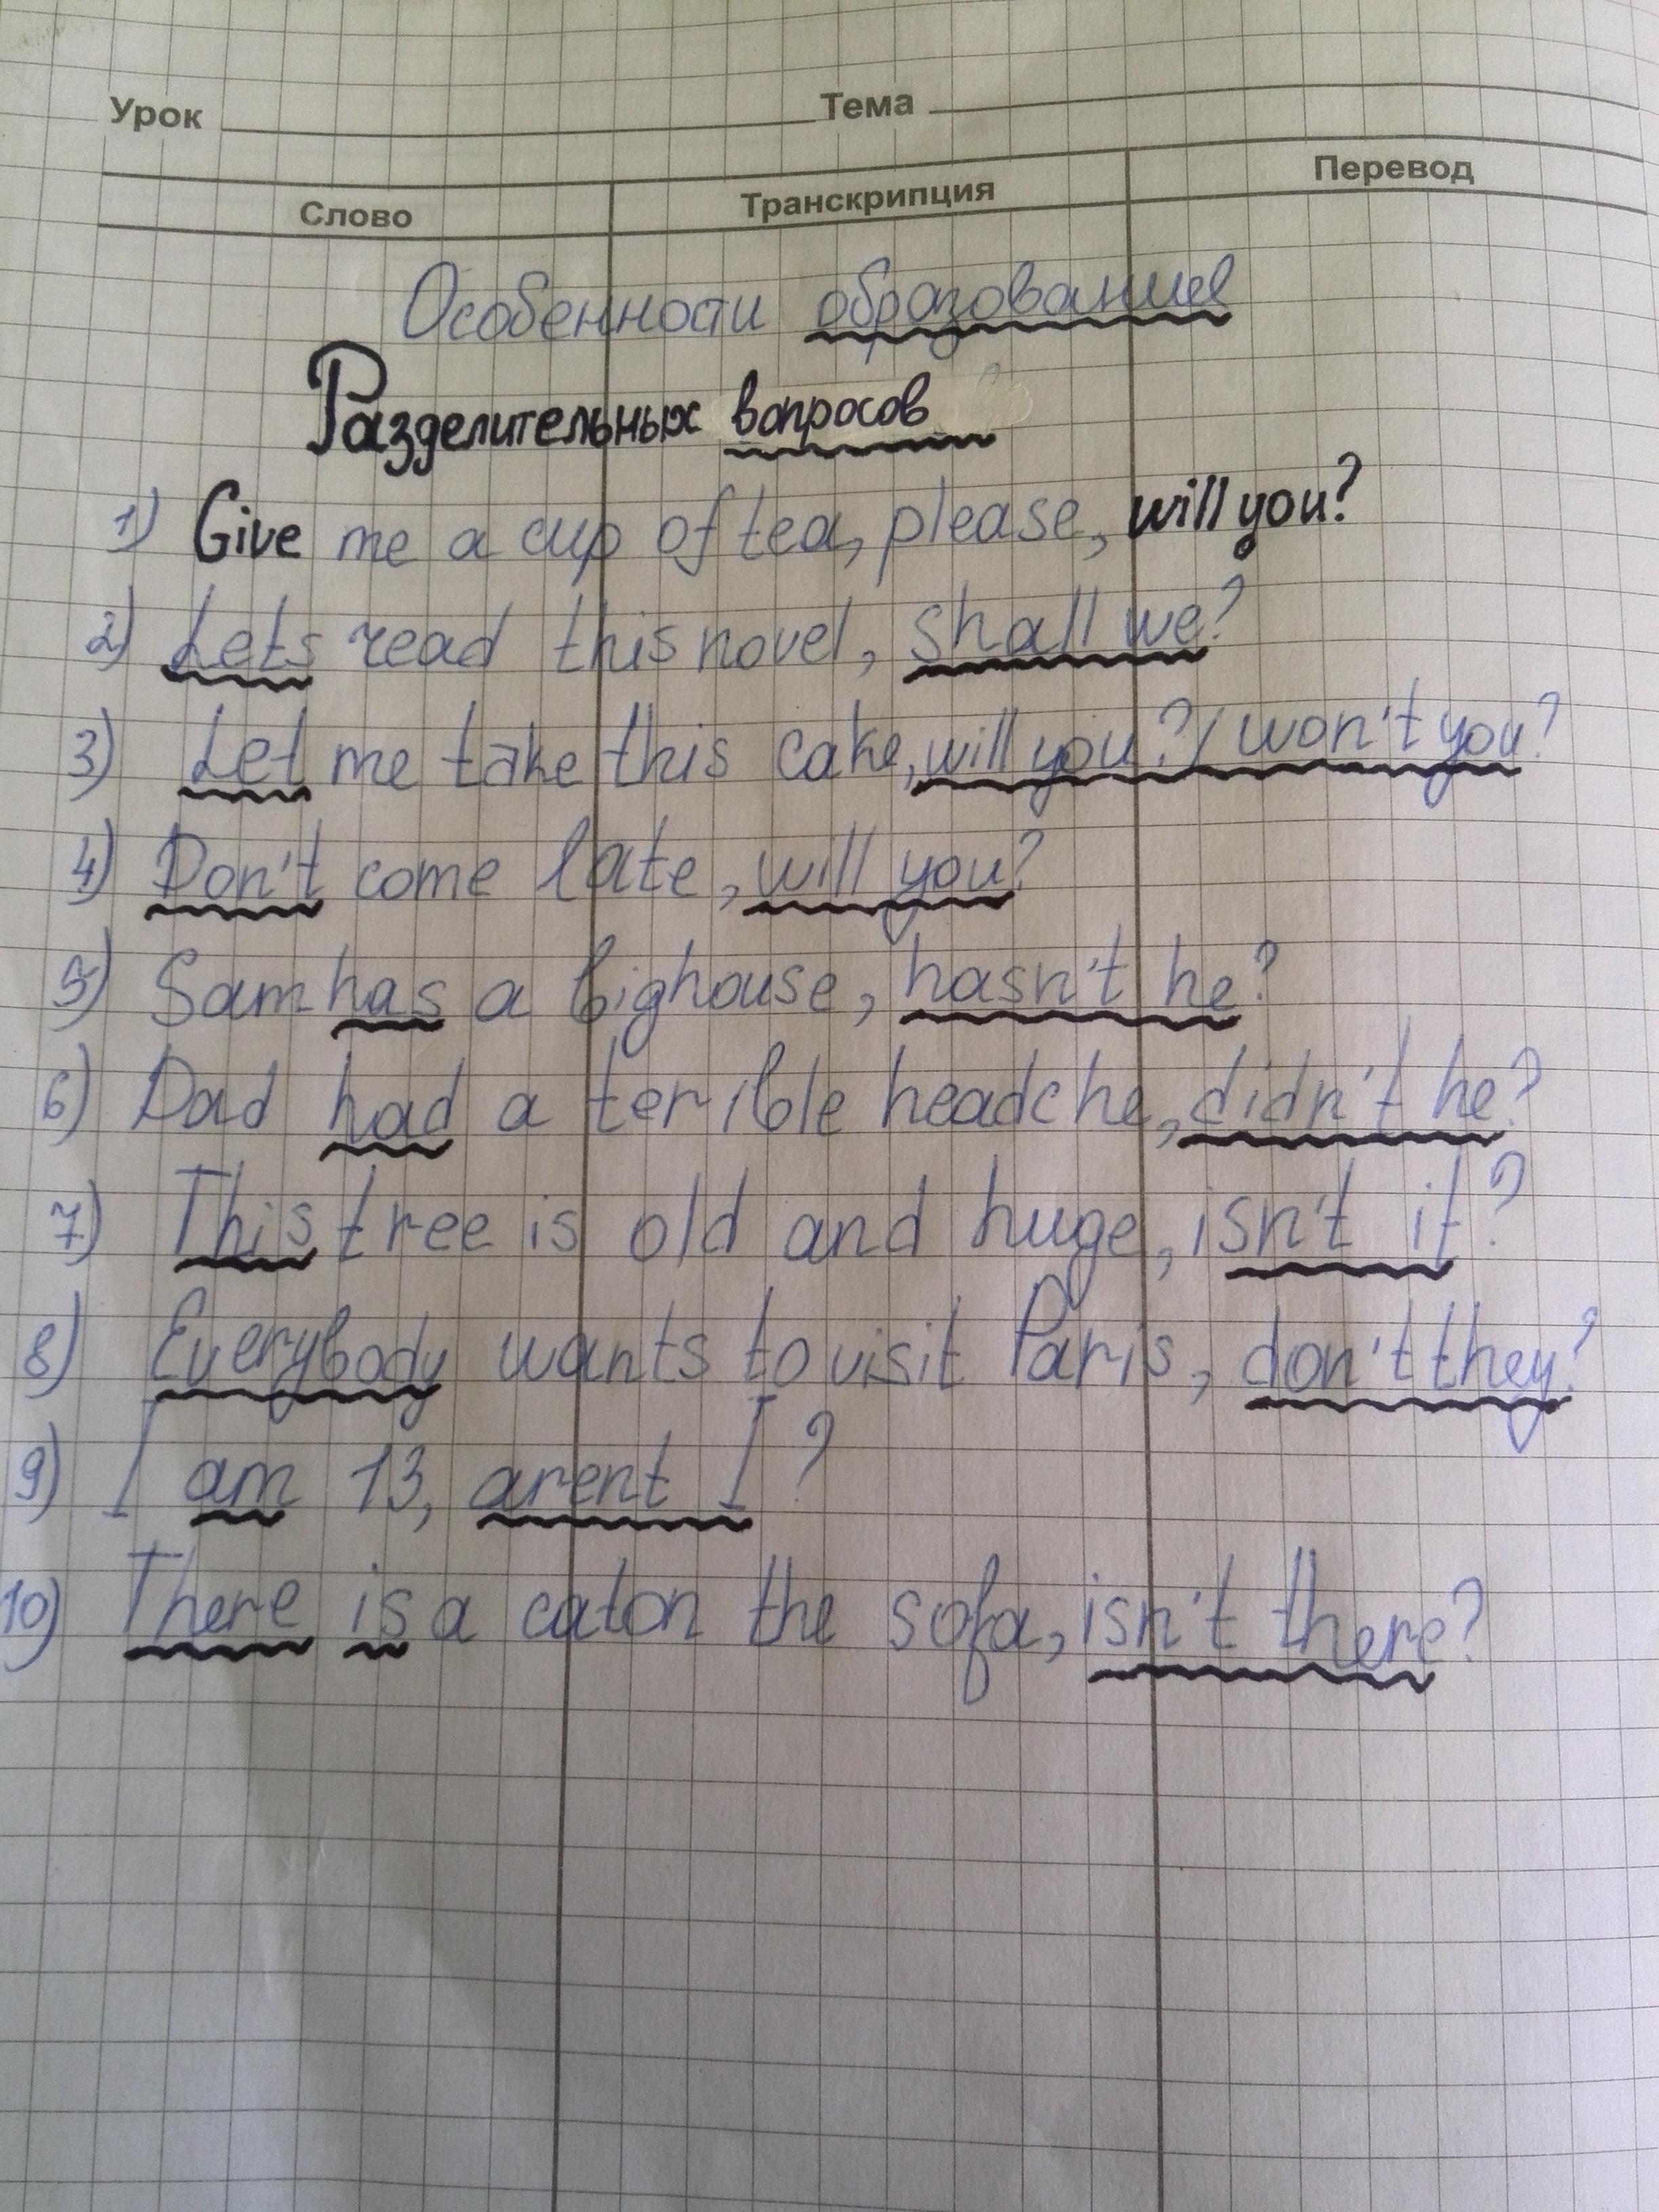 Урок Тема
Слово Транскрипция Перевод
Особенности образования
Разделительных вопросов
1) Give me a cup of tea, please, will you?
2) Lets read this novel, shall we?
3) Let me take this cake, will you?/ won't you?
4) Don't come late, will you?
5) Sam has a big house, hasn't he?
6) Dad had a terrible headche, didn't he?
7) This tree is old and huge, isn't it?
8) Everybody wants to visit Paris, don't they?
9) I am 13, arent I?
10) There is a cat on the sofa, isn't there?